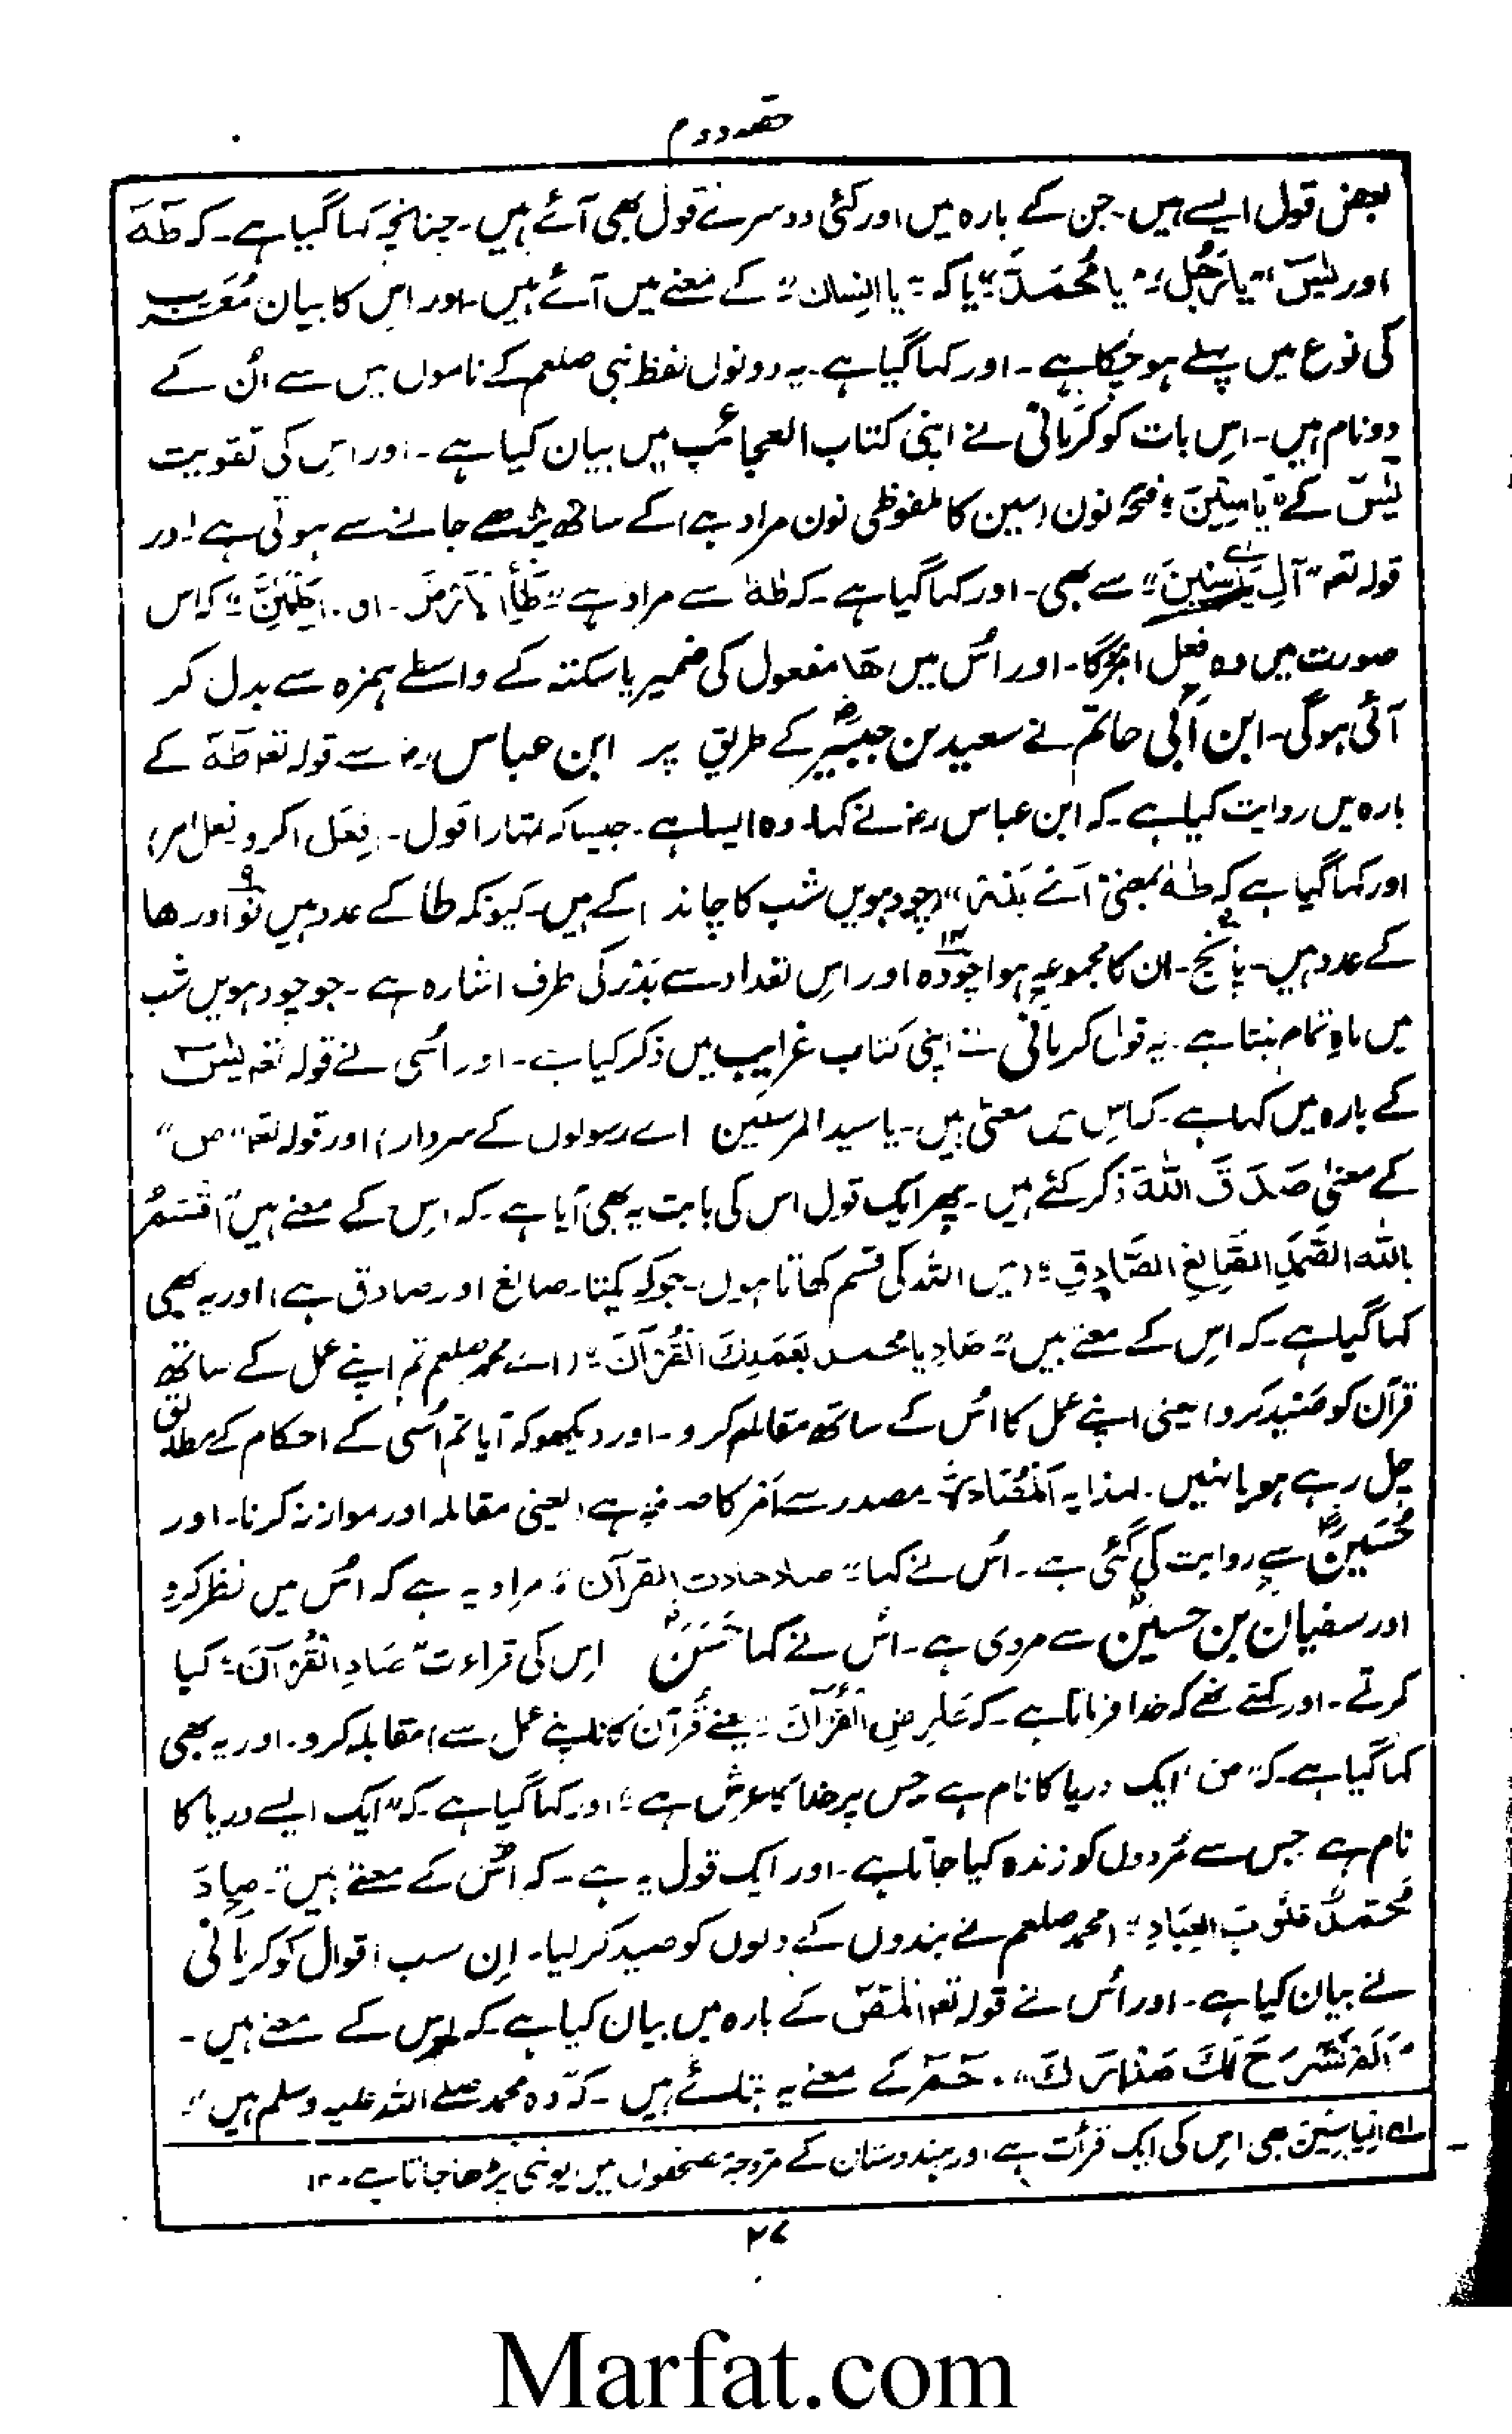 حصہ دوم
بعض قول ایسے ہیں۔ جن کے بارہ میں اور کئی دوسرے قول بھی آئے ہیں۔ چنانچہ کہا گیا ہے۔ کہ طٰہٰ
اور یٰسٓ "یا رَجُل" "یا مُحَمَّدُ" یا کہ "یا انسان" کے معنے میں آئے ہیں۔ اور اس کا بیان مُعَرَّب
کی نوع میں پہلے ہو چُکا ہے۔ اور کہا گیا ہے۔ یہ دونوں لفظ نبی صلعم کے ناموں میں سے اُن کے
دو نام ہیں۔ اِس بات کو کرمانی نے اپنی کتاب العجائب میں بیان کیا ہے۔ اور اِس کی تقویت
یٰسٓ کے "یَاسِیْنَ" فتحہ نون (سین کا ملفوظی نون مراد ہے) کے ساتھ پڑھے جانے سے ہوتی ہے اور
قولہ تعہ "آلِ یَاسِینَ" سے بھی۔ اور کہا گیا ہے۔ کہ طٰہٰ سے مراد ہے "طَأِ الْاَرْضَ۔ او۔ اِطْمَئِنَّ" کہ اس
صورت میں وہ فعل امر ہو گا۔ اور اُس میں ھَا مفعول کی ضمیر یا سکتہ کے واسطے ہمزہ سے بدل کر
آئی ہو گی۔ ابن اَبی حاتم نے سعید بن جبیرؓ کے طریق پر ابن عباس رضہ سے قولہ تعہ طٰہٰ کے
بارہ میں روایت کیا ہے۔ کہ ابن عباس رضہ نے کہا۔ وہ ایسا ہے۔ جیسا کہ تمہارا قول۔ اِفعَل (کرو فعل امر)
اور کہا گیا ہے کہ طٰہٰ بمعنی "اَے بَدْر" (چودہویں شب کا چاند) کے ہیں۔ کیونکہ طا کے عدد ہیں نَو ۹ اور ھا
کے عدد ہیں۔ پانچ ۵۔ ان کا مجموعہ ہوا چودہ ۱۴ اور اِس تعداد سے بَدْر کی طرف اشارہ ہے۔ جو چودہویں شب
میں ماہِ تمام بنتا ہے۔ یہ قول کرمانی نے اپنی کتاب غرایب میں ذکر کیا ہے۔ اور اُسی نے قولہ تعہ یٰسٓ
کے بارہ میں کہا ہے۔ کہ اِس کے معنیٰ ہیں۔ یا سید المرسلین (اے رسولوں کے سردار) اور قولہ تعہ "صٓ"
کے معنیٰ صَدَقَ اللّٰهُ ذکر کئے ہیں۔ پھر ایک قول اس کی بابت یہ بھی آیا ہے۔ کہ اِس کے معنے ہیں "اُقْسِمُ
بِاللّٰهِ الصَّمَدِ الصَّانِعِ الصَّادِقِ" (میں اللہ کی قسم کھاتا ہوں۔ جو کہ یکتا۔ صانع اور صادق ہے) اور یہ بھی
کہا گیا ہے۔ کہ اِس کے معنے ہیں "صَادِ یا محمد بِعَمَلِكَ الْقُرْآنَ" (اے محمد صلعم تم اپنے عمل کے ساتھ
قرآن کو صَید کرو) یعنی اپنے عمل کا اُس کے ساتھ مقابلہ کرو۔ اور دیکھو کہ آیا تم اُسی کے احکام کے مطابق
چل رہے ہو یا نہیں۔ لہذا یہ اَلْمُصَادَاۃُ مصدر سے اَمر کا صیغہ ہے (یعنی مقابلہ اور موازنہ کرنا۔ اور
حُسَینؓ سے روایت کی گئی ہے۔ اُس نے کہا "صاد حادث القرآن" مراد یہ ہے کہ اُس میں نظر کرو
اور سفیان بن حسینؓ سے مروی ہے۔ اُس نے کہا حَسَنؓ اِس کی قراءت "صَادِ الْقُرْآنَ" کیا
کرتے۔ اور کہتے تھے کہ خدا فرماتا ہے۔ کہ عَارِضِ الْقُرْآنَ" یعنے قُرآن کا (اپنے عمل سے) مقابلہ کرو۔ اور یہ بھی
کہا گیا ہے۔ کہ "ص" ایک دریا کا نام ہے جس پر خدا کا عرش ہے" اور کہا گیا ہے۔ کہ "ایک ایسے دریا کا
نام ہے جس سے مُردوں کو زندہ کیا جاتا ہے۔ اور ایک قول یہ ہے۔ کہ اُس کے معنے ہیں "صَادَ
مُحَمَّدٌ قُلُوْبَ الْعِبَادِ" (محمد صلعم نے بندوں کے دلوں کو صید کر لیا۔ اِن سب اقوال کو کرمانی
نے بیان کیا ہے۔ اور اُس نے قولہ تعہ المٓصٓ کے بارہ میں بیان کیا ہے کہ اِس کے معنے ہیں۔
"اَلَمْ نَشْرَحْ لَكَ صَدْرَكَ"۔ حٰمٓ کے معنے یہ بتلائے ہیں۔ کہ "وہ محمد صلے اللہ علیہ وسلم ہیں"
لہ اِلیاسِیْنَ بھی اِس کی ایک قرأت ہے اور ہندوستان کے مروجہ مصحفوں میں یونہی پڑھا جاتا ہے۔ ۱۲
۲۷
Marfat.com